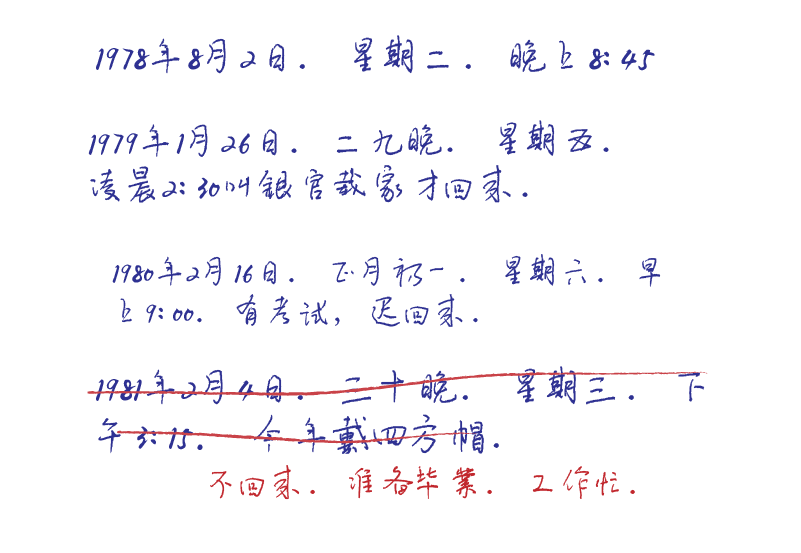 1978年8月2日. 星期二. 晚上8:45
1979年1月26日. 二九晚. 星期五.
凌晨2:30叫銀官家才回来.
1980年2月16日. 正月初一. 星期六. 早
上9:00. 有考试, 迟回来.
1981年2月4日. 三十晚. 星期三. 下
午3:15. 今年戴四方帽.
不回来. 准备毕業. 工作忙.